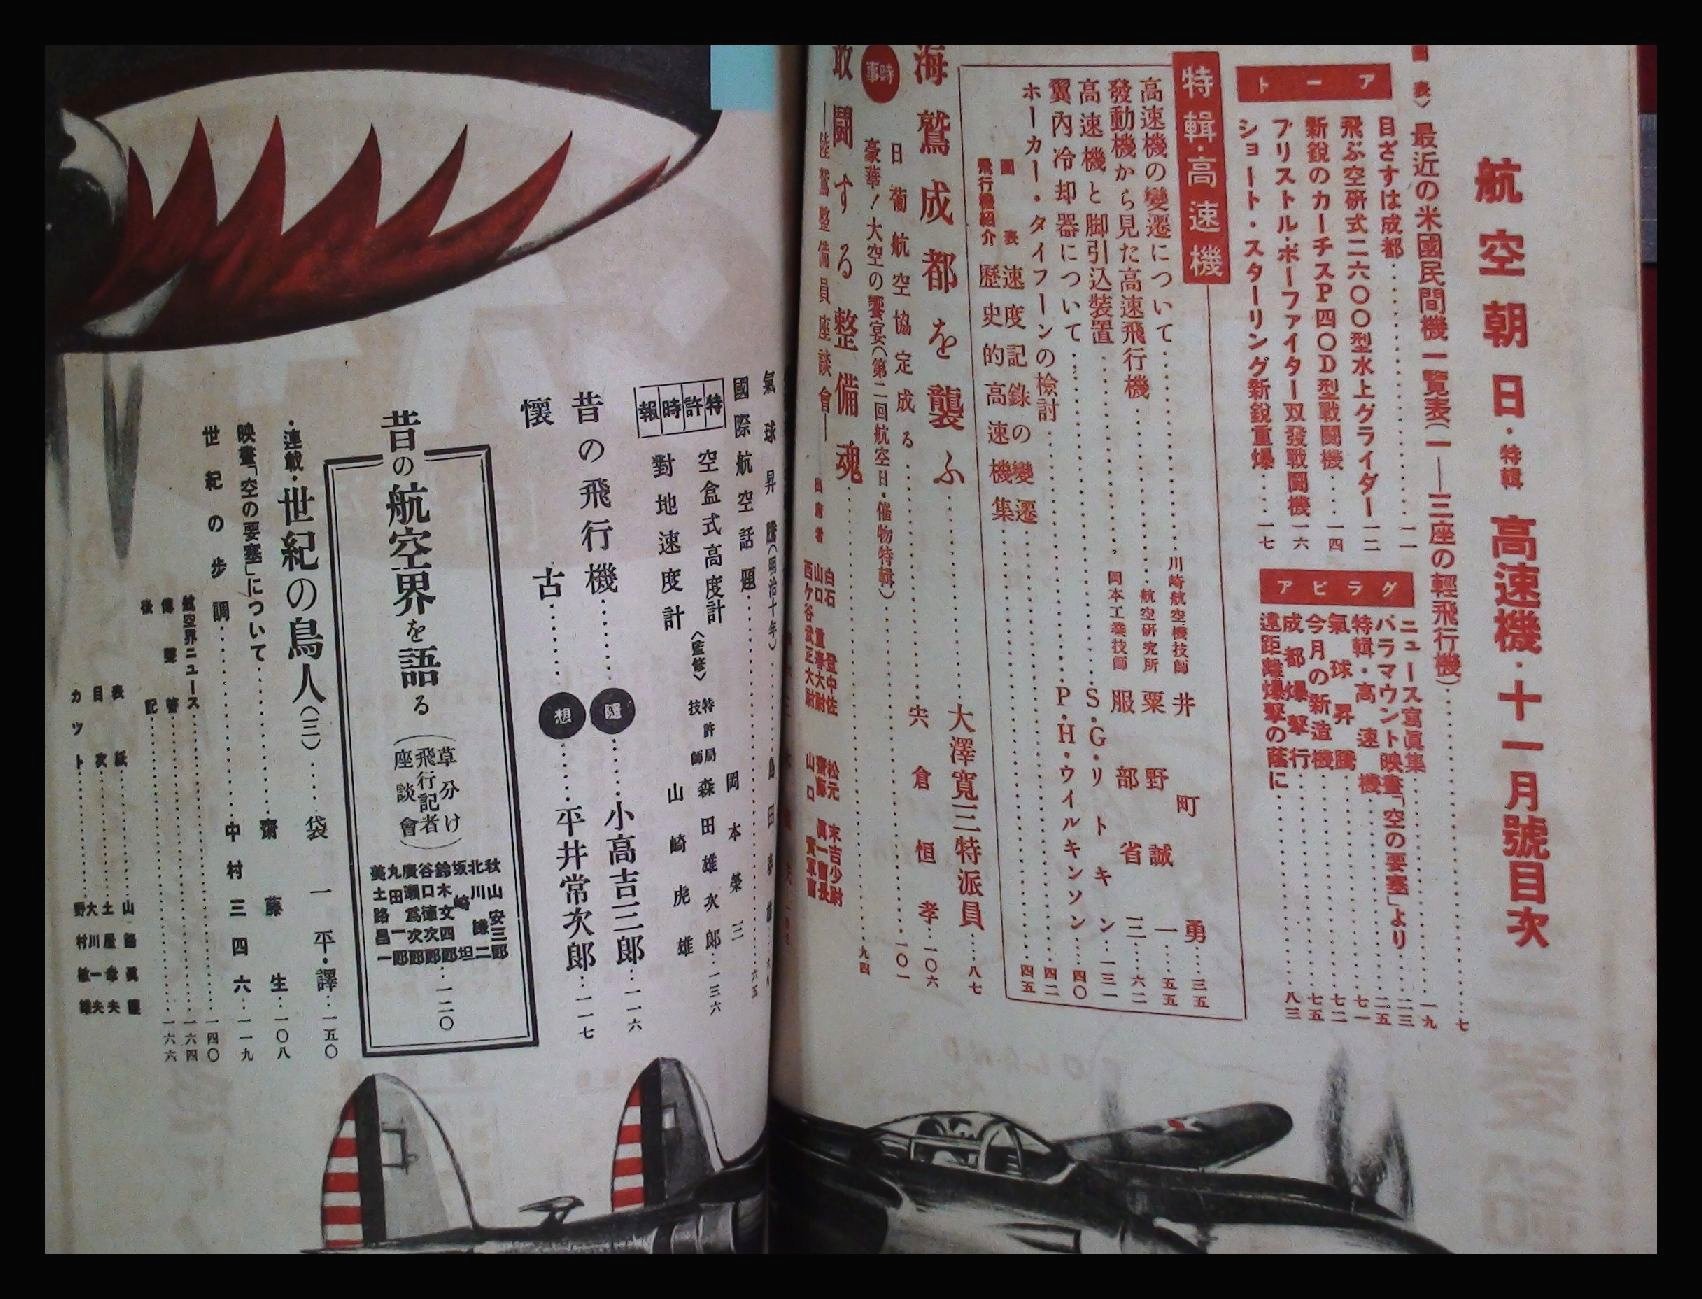 航空朝日・特輯 高速機・十一月號目次
表〉最近の米國民間機一覽表(一――三座の輕飛行機)……七
アート
目ざすは成都……一一
飛ぶ空研式二六〇〇型水上グライダー一二
新銳のカーチスP四〇D型戰鬪機……一四
ブリストル・ボーファイター双發戰鬪機一六
ショート・スターリング新銳重爆……一七
グラビア
ニュース寫眞集……一九
パラマウント映畫「空の要塞」より……二三
特輯・高速機……二五
氣球昇騰……七一
今月の新造機……七二
成都爆擊行……七五
遠距離爆擊の蔭に……八三
特輯・高速機
高速機の變遷について……川崎航空機技師 井町勇……三五
發動機から見た高速飛行機……航空研究所 粟野誠一……五五
高速機と脚引込裝置……岡本工業技師 服部省三……六二
翼內冷却器について……S・G・リトキン……三一
ホーカー・タイフーンの檢討……P・H・ウイルキンソン……四〇
圖表 速度記錄の變遷……四二
飛行機紹介 歷史的高速機集……四五
海鷲成都を襲ふ……大澤寬三特派員……八七
時事
日葡航空協定成る……宍倉恒孝……一〇六
豪華!大空の饗宴(第二回航空日・催物特輯)……一〇一
敢鬪する整備魂……九四
―陸鷲整備員座談會―
出席者
氣球昇騰(明治十年)
國際航空話題……岡本榮三
特許時報
空盒式高度計
對地速度計
〈監修〉特許局技師 森田雄次郎……一三六
山崎虎雄
昔の飛行機……隨……小高吉三郎……一一六
懷古……想……平井常次郎……一一七
昔の航空界を語る(草分け飛行記者座談會)
秋山安三郎
北川謙二
鈴木文四郎
谷口德次郎
廣瀨爲次郎
丸田一郎
美土路昌一
……一二〇
・連載・世紀の鳥人(三)……袋一平・譯……一五〇
映畫「空の要塞」について……齋藤生……一〇八
世紀の步調……中村三四六……一一九
航空界ニュース……一四〇
一六四
後記……一六六
表紙
目次
カット